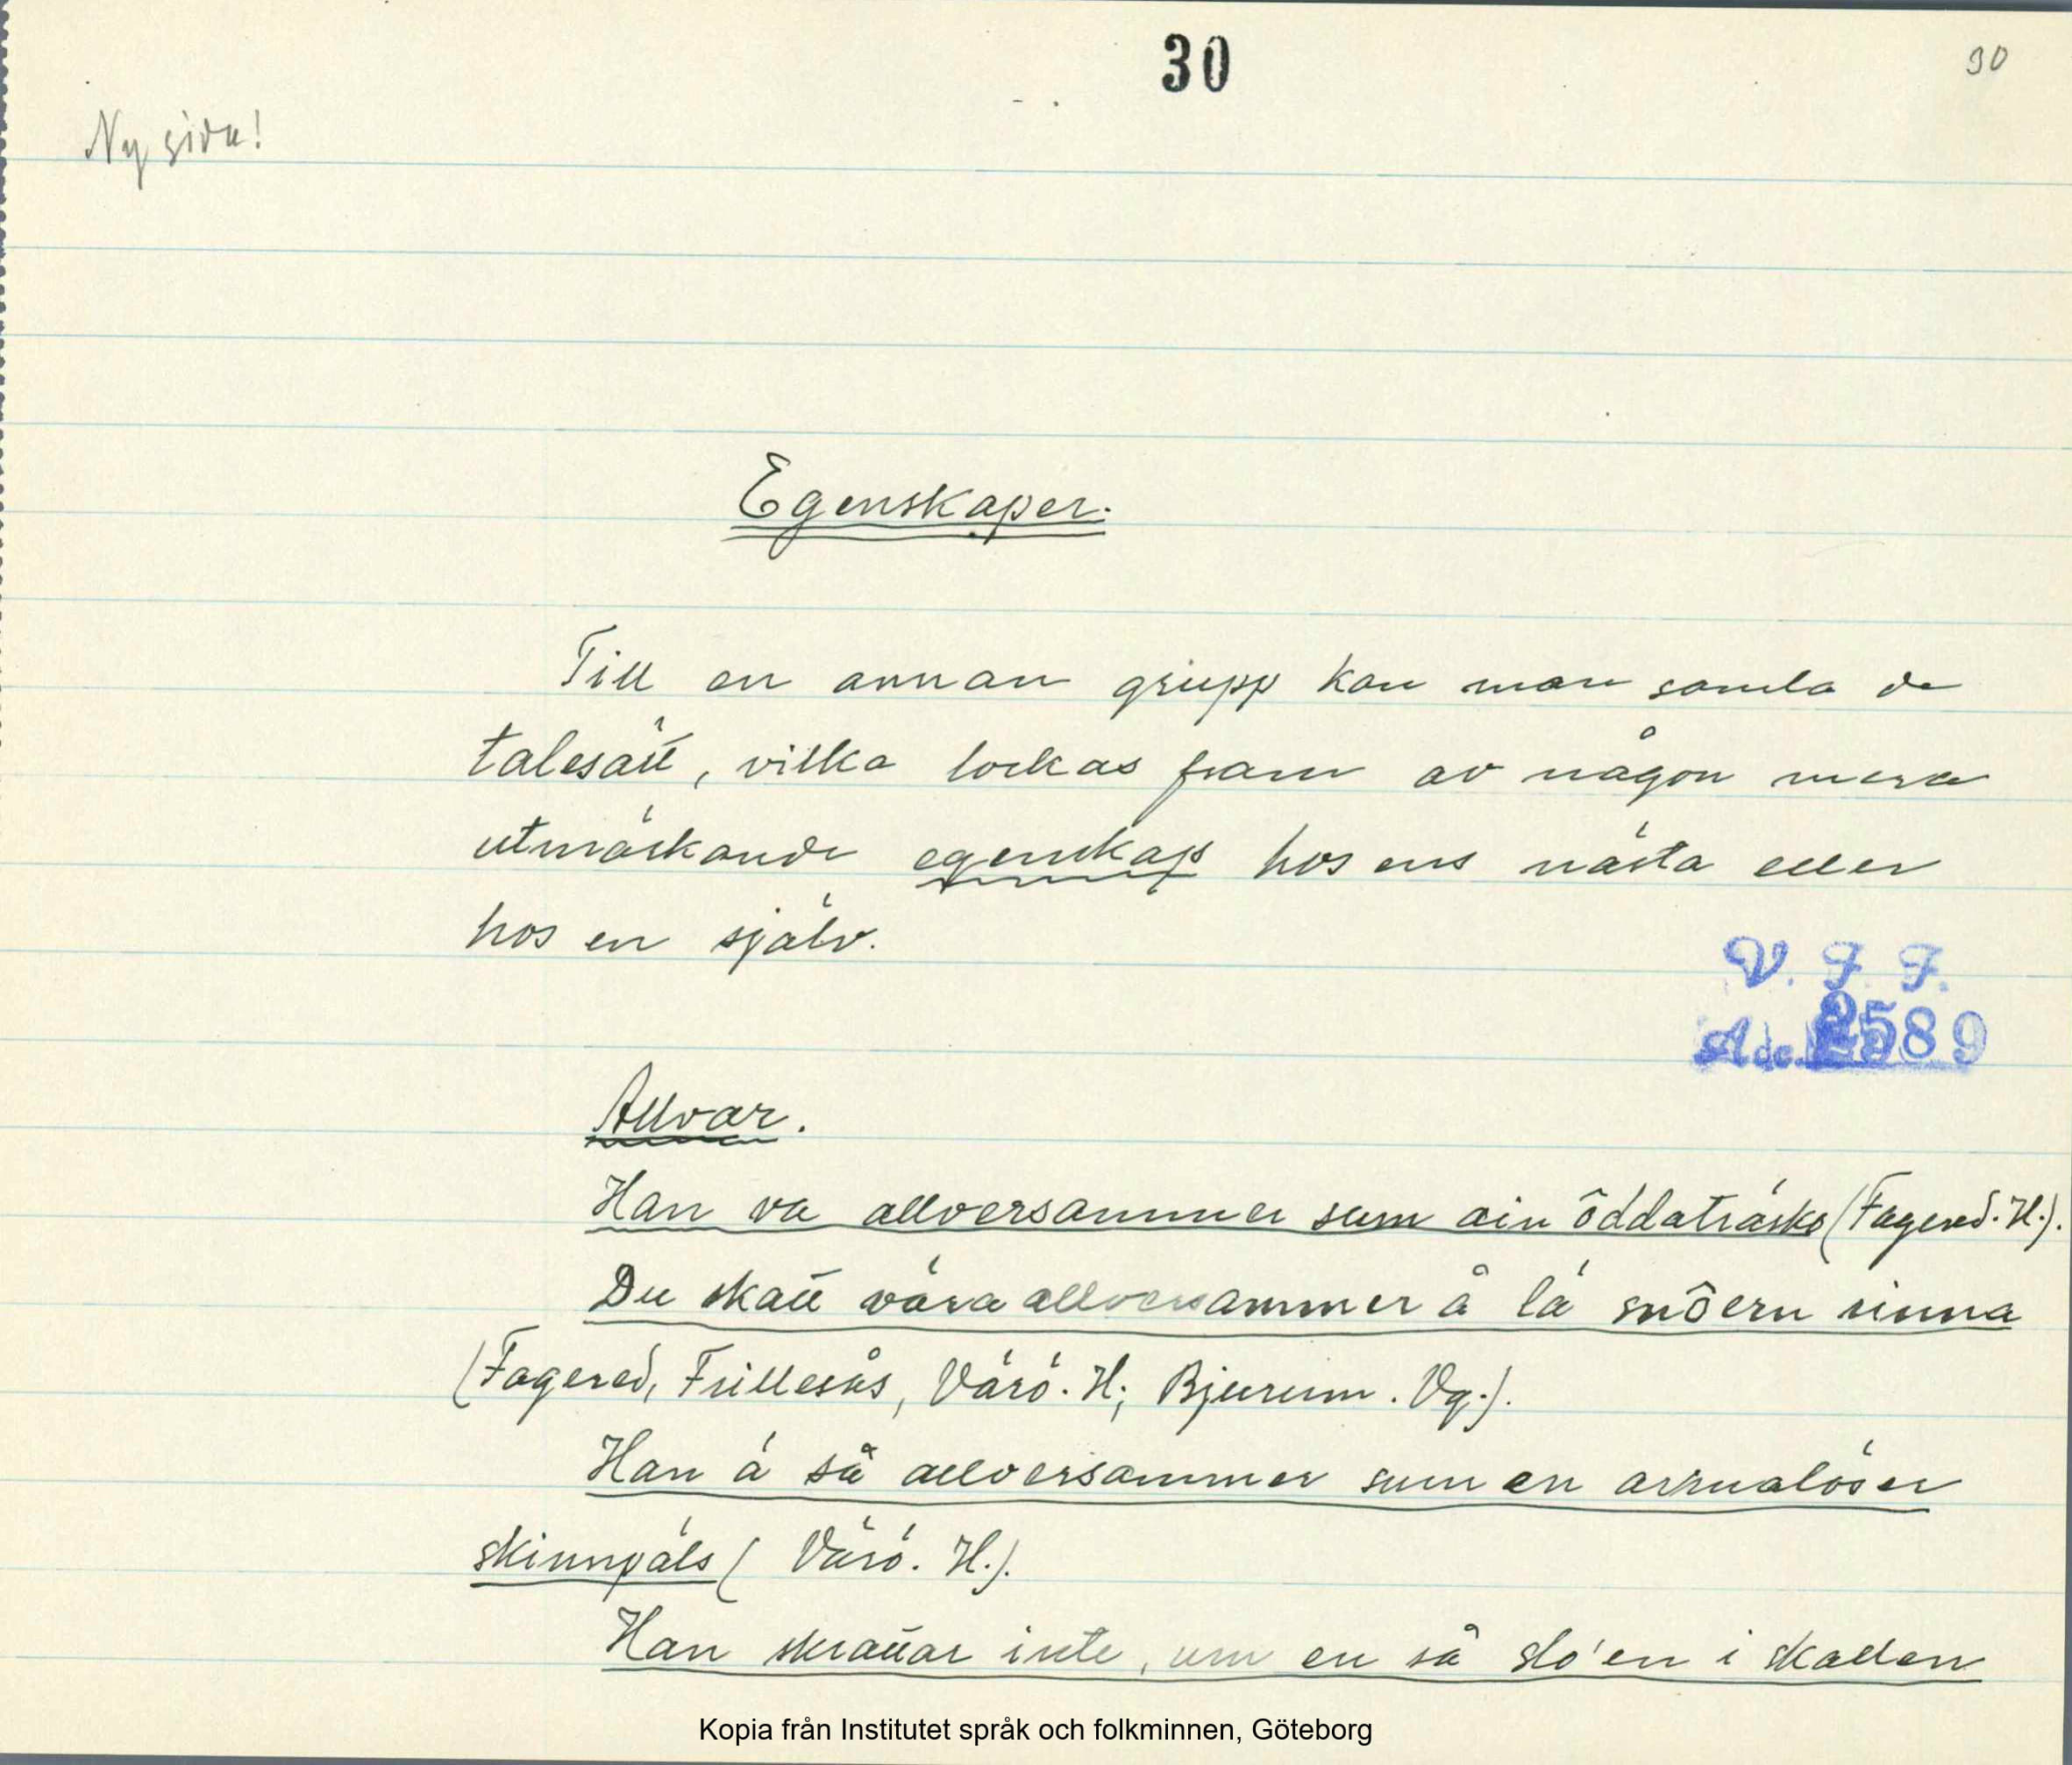 30
30
Ny sida!
Egenskaper.
Till en annan grupp kan man samla de
talesätt, vilka lockas fram av någon mera
utmärkande egenskap hos ens nästa eller
hos en själv.
V. F. F.
Acc. 2589
Allvar.
Han va allversammer sum ain ôddaträsko (Fagered. H.).
Du skatt vära allversammer å lä snôern rinna
(Fagered, Frillesås, Värö. H; Bjurum. Vg.).
Han ä så allversammer sum en armalöser
skinnpäls (Värö. H.).
Han skrattar inte, um en så slo'en i skallen
Kopia från Institutet språk och folkminnen, Göteborg